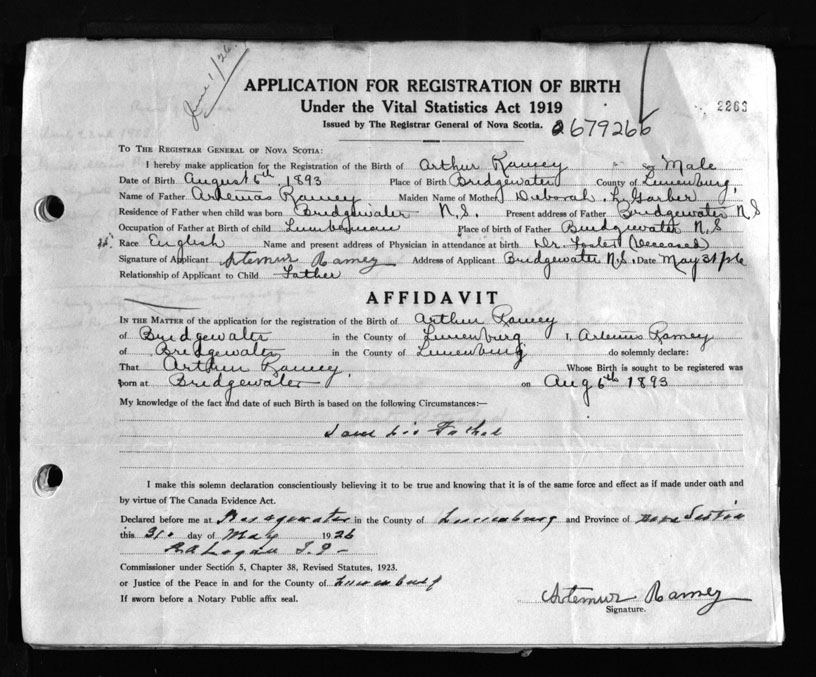 June 1/26.
APPLICATION FOR REGISTRATION OF BIRTH
Under the Vital Statistics Act 1919
2263
Issued by The Registrar General of Nova Scotia.
2679266
To The Registrar General of Nova Scotia:
I hereby make application for the Registration of the Birth of Arthur Ramey Sex Male
Date of Birth August 6th 1893 Place of Birth Bridgewater County of Lunenburg,
Name of Father Artemas Ramey Maiden Name of Mother Deborah L Garber
Residence of Father when child was born Bridgewater N.S. Present address of Father Bridgewater N S
Occupation of Father at Birth of child Lumberman Place of birth of Father Bridgewater N.S
Race English Name and present address of Physician in attendance at birth Dr. Foster (Deceased)
Signature of Applicant Artemur Ramey Address of Applicant Bridgewater N.S. Date May 31st/26
Relationship of Applicant to Child Father
AFFIDAVIT
In the Matter of the application for the registration of the Birth of Arthur Ramey
of Bridgewater in the County of Lunenburg I, Artemus Ramey
of Bridgewater in the County of Lunenburg do solemnly declare:
That Arthur Ramey, Whose Birth is sought to be registered was
born at Bridgewater on Aug 6th 1893
My knowledge of the fact and date of such Birth is based on the following Circumstances:—
I am his Father
I make this solemn declaration conscientiously believing it to be true and knowing that it is of the same force and effect as if made under oath and
by virtue of The Canada Evidence Act.
Declared before me at Bridgewater in the County of Lunenburg and Province of Nova Scotia
this 31. day of May 1926
R A Logan J. P.
Commissioner under Section 5, Chapter 38, Revised Statutes, 1923.
or Justice of the Peace in and for the County of Lunenburg
If sworn before a Notary Public affix seal.
Artemur Ramey
Signature.